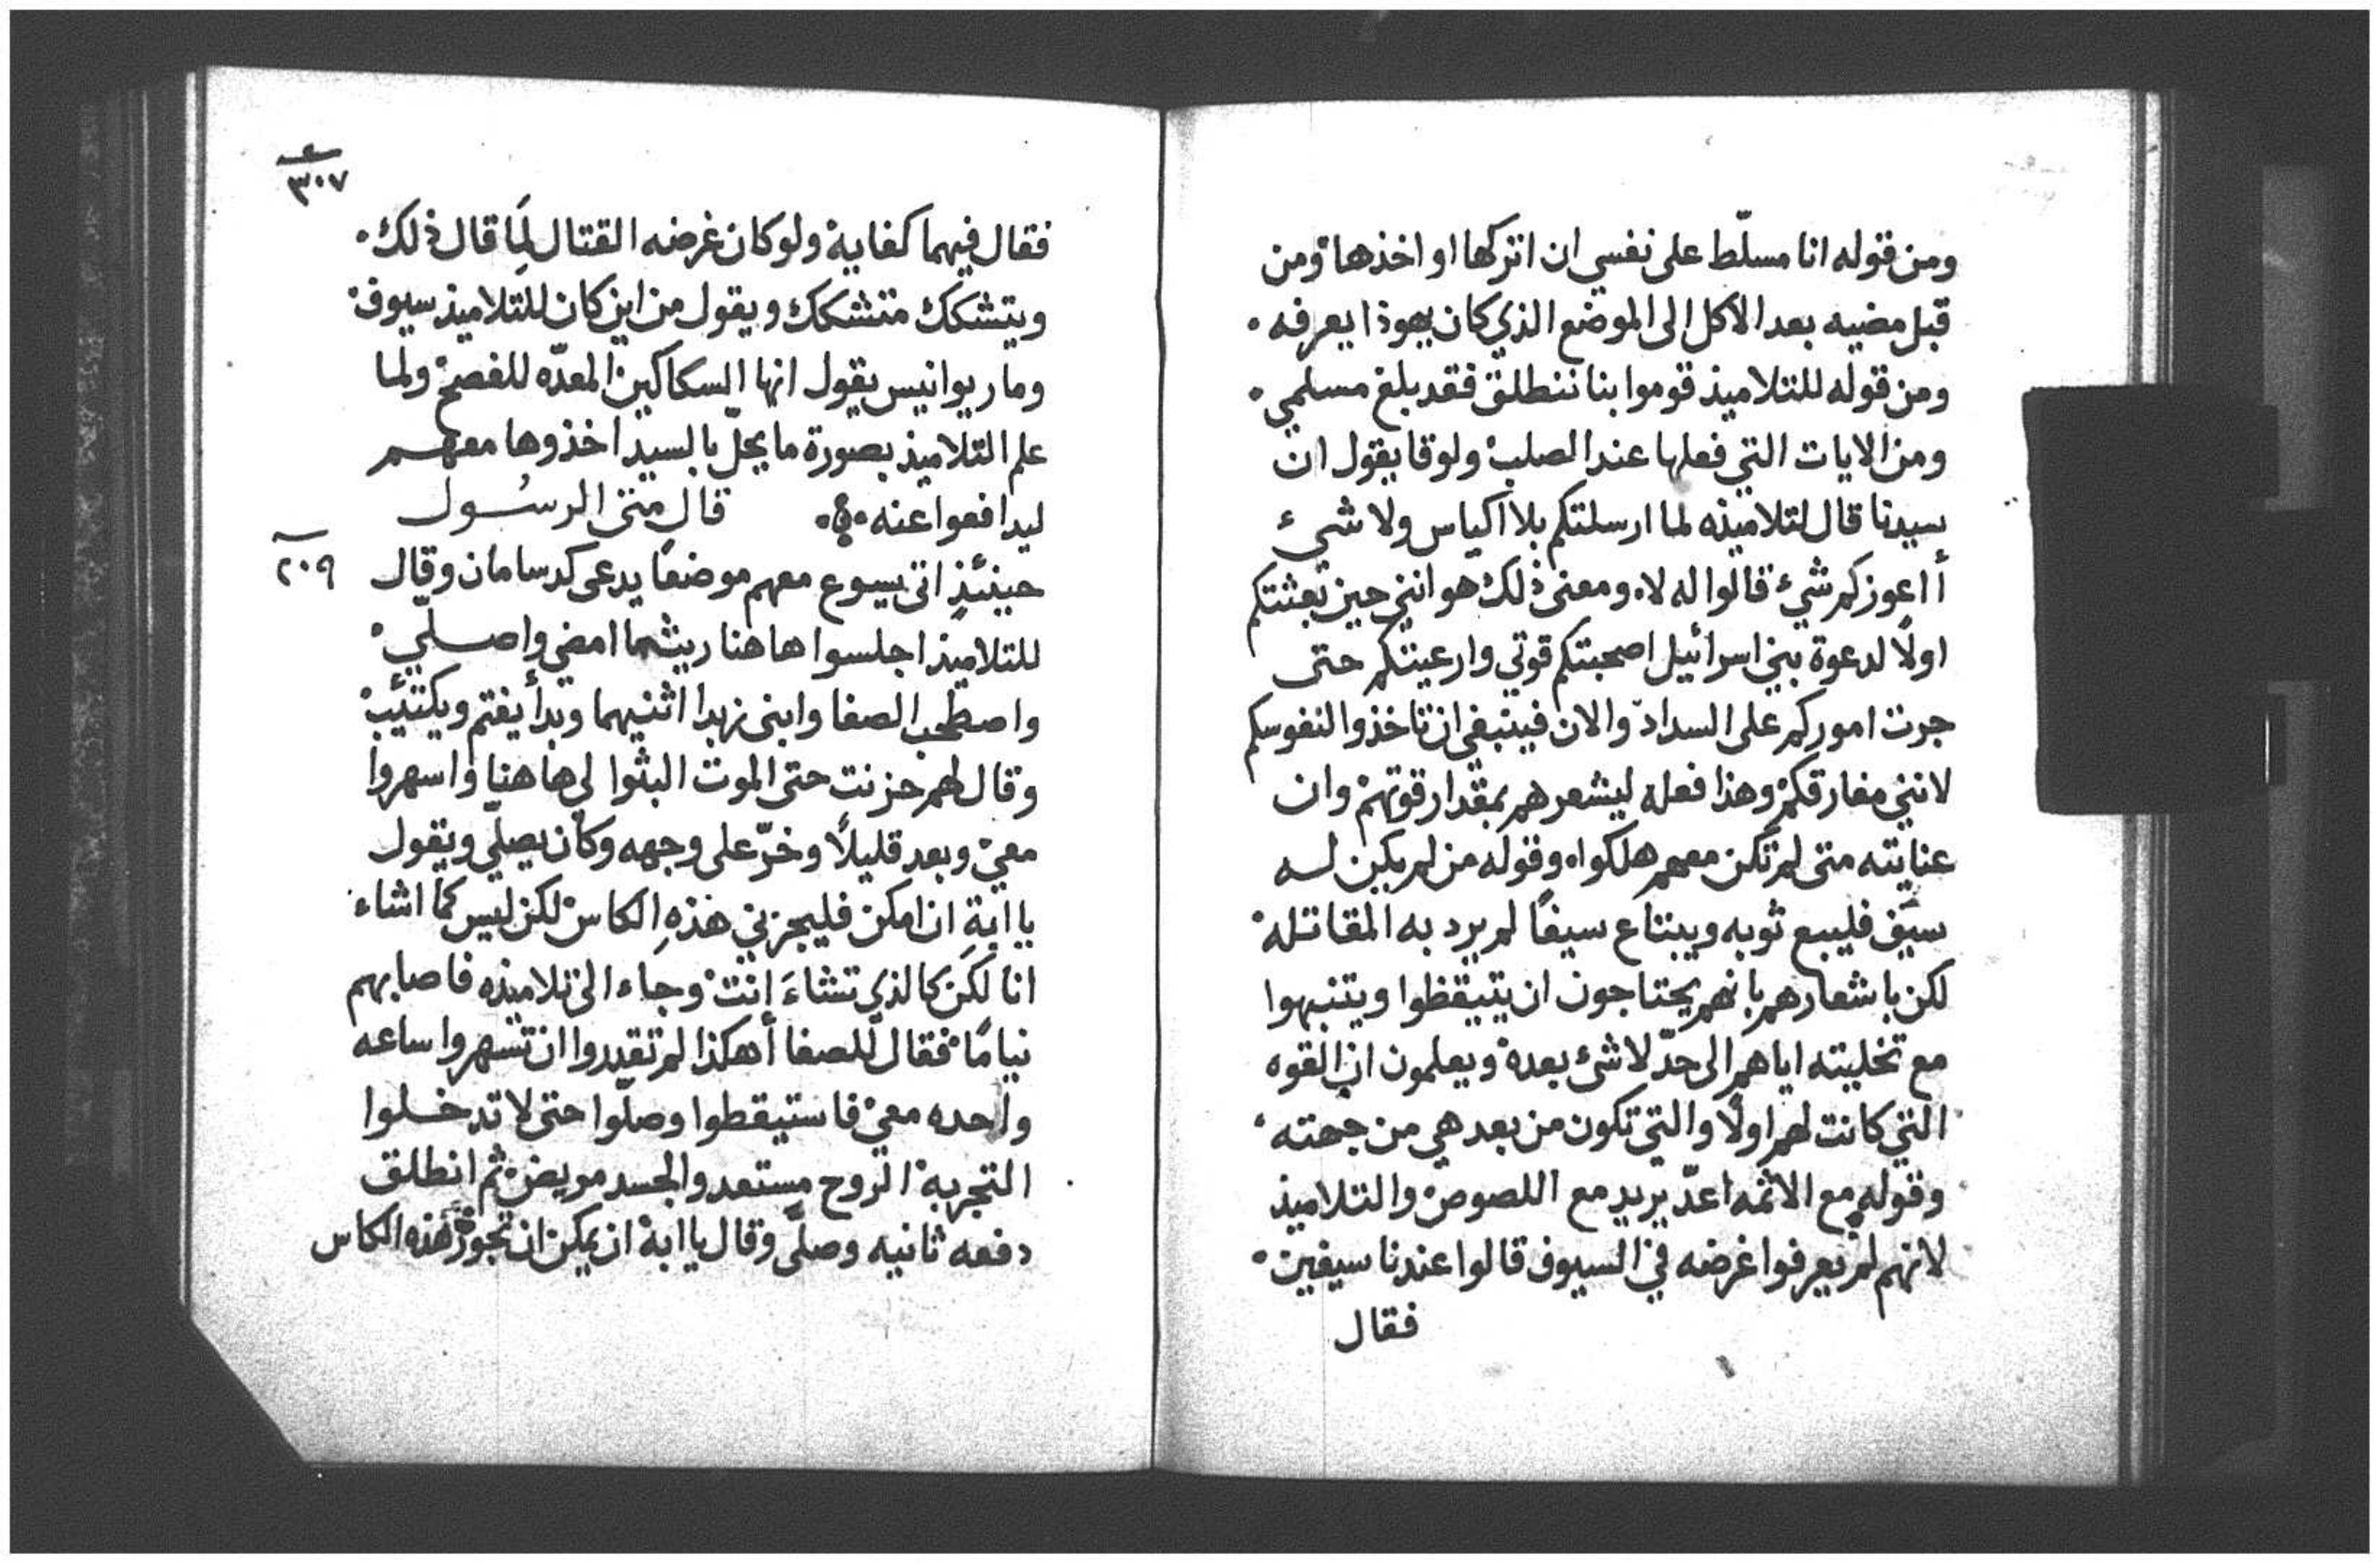 ومن قوله انا مسلّط على نفسي ان اتركها او اخذها ومن
قبل مضيه بعد الاكل الى الموضع الذي كان يهوذا يعرفه
ومن قوله للتلاميذ قوموا بنا ننطلق فقد بلغ مسلمي
ومن الايات التي فعلها عند الصلب ولوقا يقول ان
سيدنا قال لتلاميذه لما ارسلتكم بلا اكياس ولا شيء
أاعوزكم شيء قالوا له لا ومعنى ذلك هو انني حين بعثتكم
اولًا لدعوة بني اسرائيل اصحبتكم قوتي وارعيتكم حتى
جرت اموركم على السداد والان فينبغي ان تاخذوا لنفوسكم
لانني مفارقكم وهذا فعله ليشعرهم بمقدار قوتهم وان
عنايته متى لم تكن معهم هلكوا وقوله من لم يكن له
سيف فليبع ثوبه ويبتاع سيفًا لم يرد به المقاتلة
لكن باشعارهم بانهم يحتاجون ان يتيقظوا ويتنبهوا
مع تخليته اياهم الى حدّ لا شئ بعده ويعلمون ان القوه
التي كانت لهم اولًا والتي تكون من بعد هي من جهته
وقوله مع الاثمه اعدّ يريد مع اللصوص والتلاميذ
لانهم لم يعرفوا غرضه في السيوف قالوا عندنا سيفين
فقال
٣٠٧
فقال فيهما كفاية ولو كان غرضه القتال لمَا قال ذلك
ويتشكك متشكك ويقول من اين كان للتلاميذ سيوف
وماريوانيس يقول انها السكاكين المعدّه للفصح ولما
علم التلاميذ بصورة ما يحلّ بالسيد اخذوها معهم
ليدافعوا عنه قال متى الرسول
٢٠٩
حينئذٍ اتى يسوع معهم موضعًا يدعى كدسامان وقال
للتلاميذ اجلسوا هاهنا ريثما امضي واصلّي
واصطحب الصفا وابني زبدا اثنيهما وبدأ يغتم ويكتئب
وقال لهم حزنت حتى الموت البثوا لي هاهنا واسهروا
معي وبعد قليلًا وخرّ على وجهه وكان يصلّي ويقول
يا ابة ان امكن فليجزني هذهِ الكاس لكن ليس كما اشاء
انا لكن كالذي تشاءَ انت وجاء الى تلاميذه فاصابهم
نيامًا فقال للصفا أهكذا لم تقدروا ان تسهروا ساعه
واحده معي فاستيقطوا وصلّوا حتى لا تدخلوا
التجربة الروح مستعد والجسد مريض ثم انطلق
دفعه ثانيه وصلّى وقال يا ابة ان يمكن ان تجوز هذه الكاس